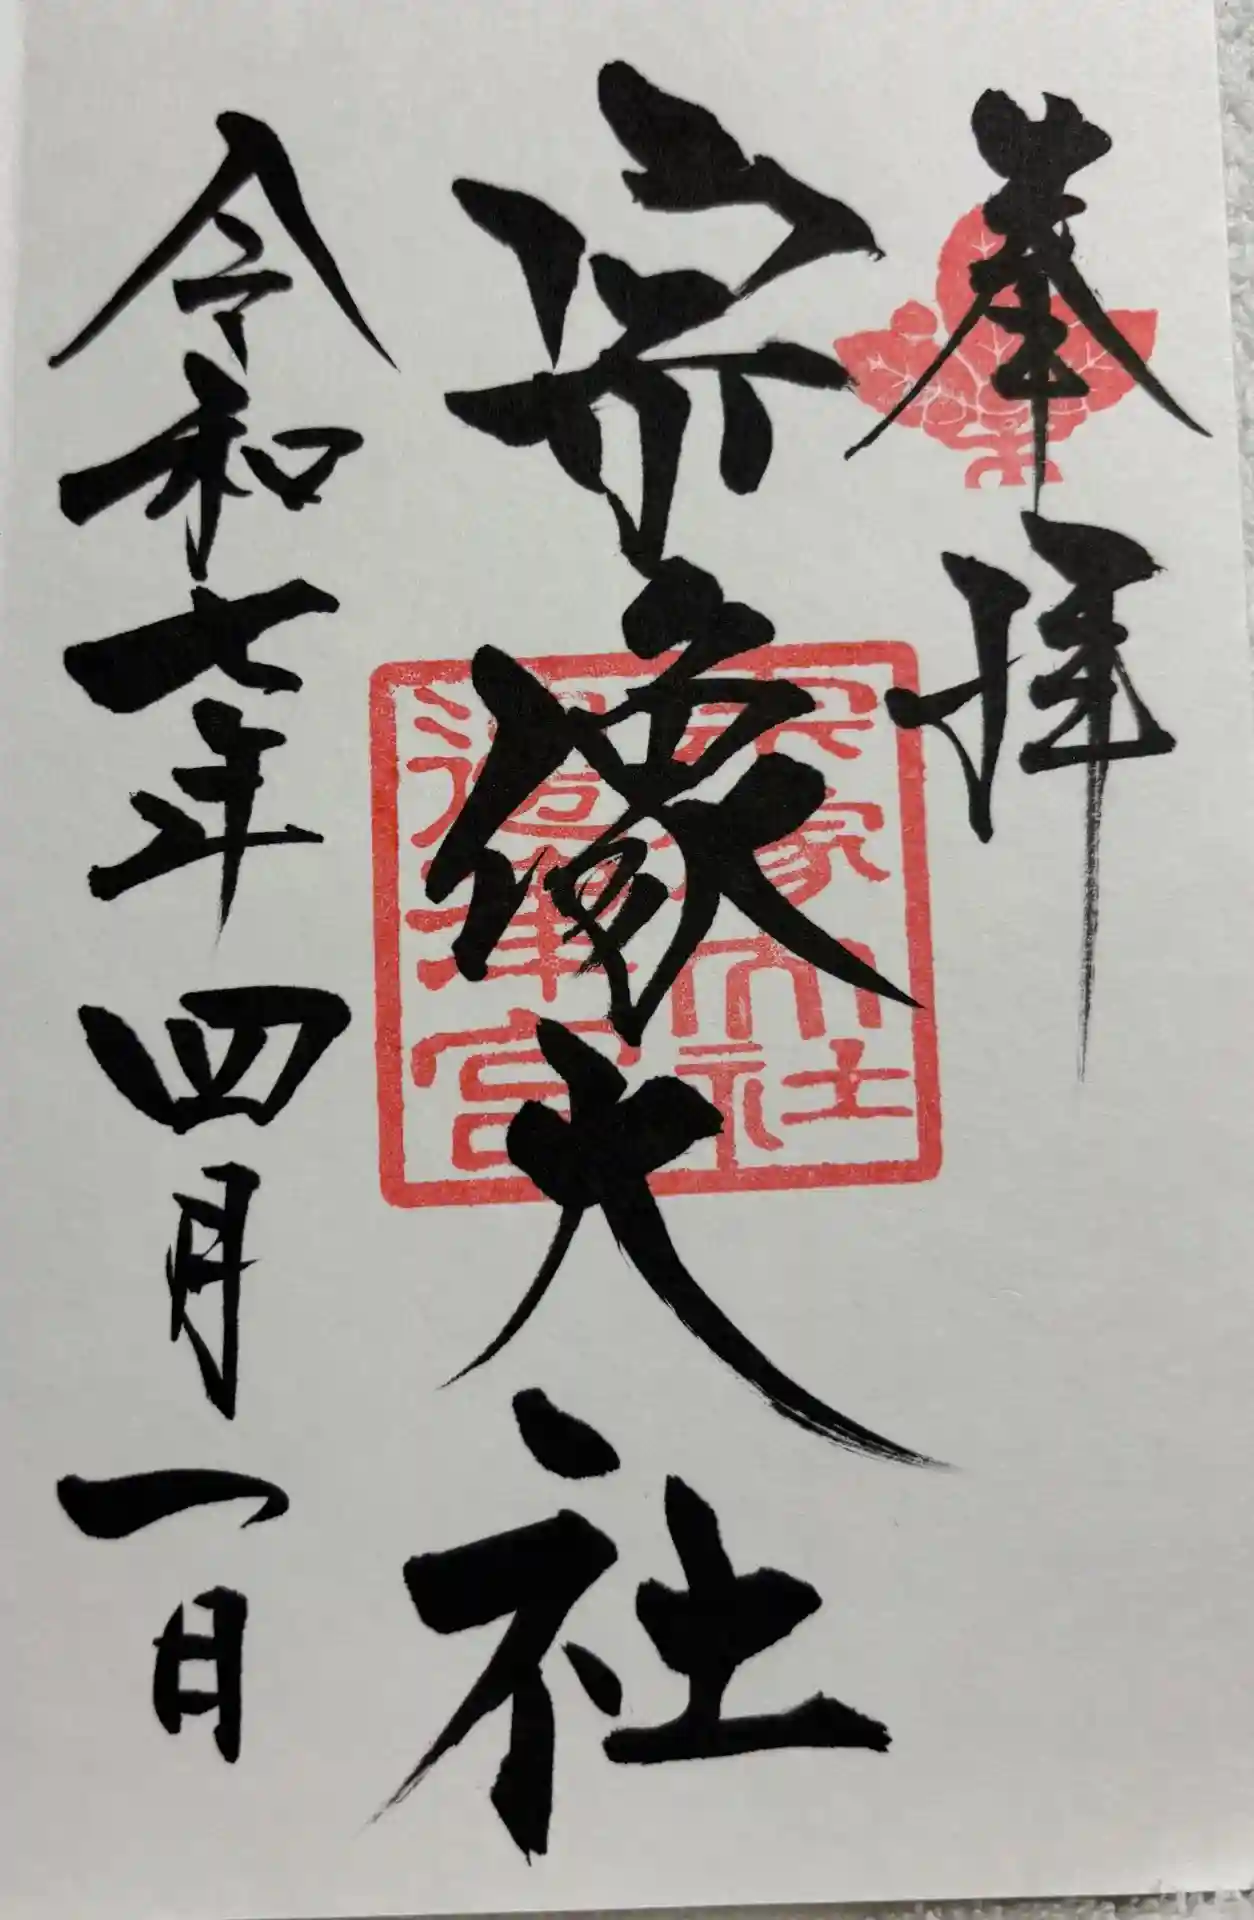 奉拝
宗像大社
宗像大社
邊津宮
令和七年四月一日